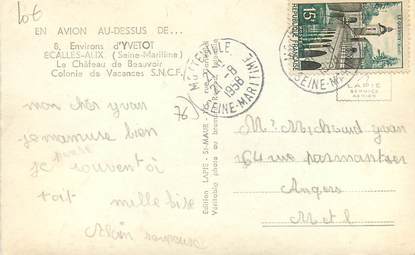 Lot
EN AVION AU-DESSUS DE...
8, Environs d'YVETOT
ECALLES-ALIX. (Seine-Maritime)
Le Château de Beauvoir
Colonie de Vacances S.N.C.F.
76)
MOTTEVILLE
21-8
1958
SEINE-MARITIME
15F
SEINE-M
LAPIE
SERVICE
AERIEN
Edition LAPIE - St-MAUR
Véritable photo au bromure
mon cher yvan
je m'amuse bien
je pense souvent à
toit mille bise
Alain
Mr Michaud yvan
164 rue parmantier
Angers
M et L